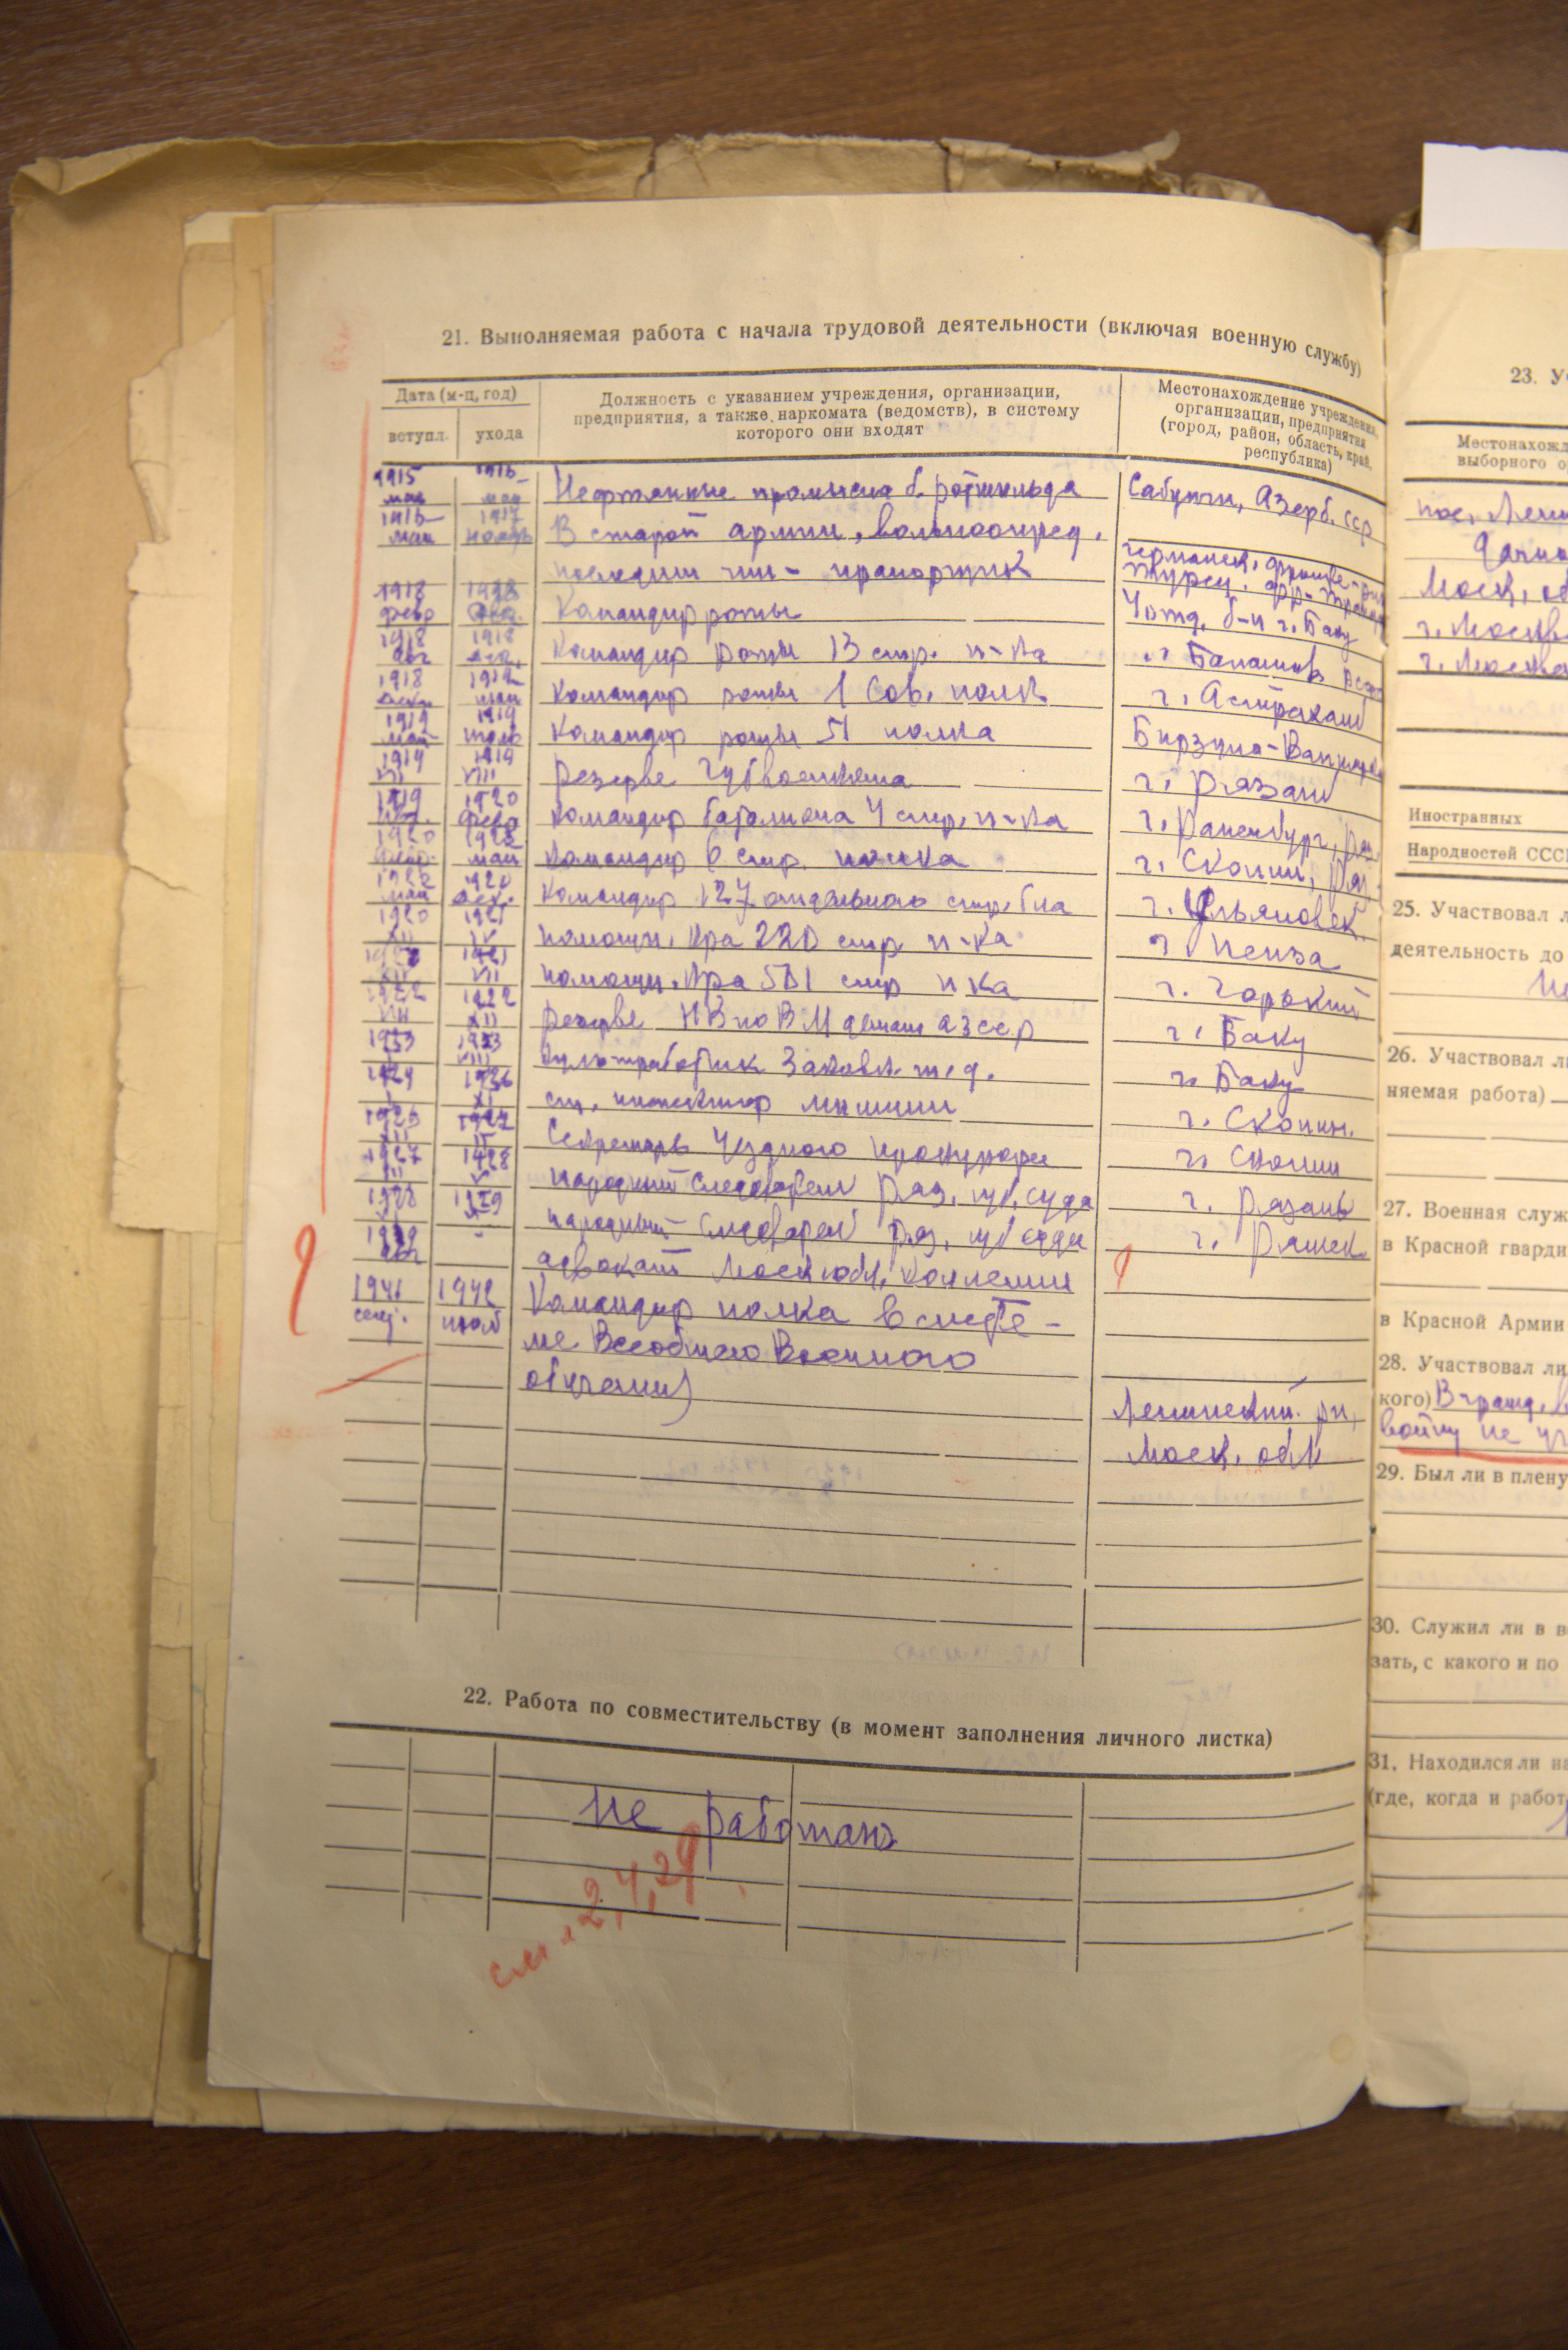 21. Выполняемая работа с начала трудовой деятельности (включая военную службу)
Дата (м-ц, год)
вступл.
ухода
Должность с указанием учреждения, организации,
предприятия, а также наркомата (ведомств), в систему
которого они входят
Местонахождение учреждения,
организации, предприятия
(город, район, область, край,
республика)
1915 1916 Нефтянные промысла б. ротшильда Сабунчи, Азерб. сср
май май
1916 1917 В старой армии, вольноопред.
май ноябрь
последний чин - прапорщик
1918 1918 Командир роты 4 отд. б-н г. Баку
февр авг.
1918 1918 Командир роты 13 стр. п-ка г. Балашов
авг
1918 1919 Командир роты 1 Сов. полк г. Астрахань
май
1919 1919 Командир роты 51 полка Бирзула-Вапнярка
май июль
1919 1919 резерве Губвоенкома г. Рязань
VII VIII
1919 1920 Командир батальона 4 стр. п-ка г. Раненбург, ряз
февр
1920 май Командир 6 стр. полка г. Скопин, Ряз.
май 1920 Командир 127 отдельного стр. б-на г. Ульяновск.
1920 1921 помощн. кра 220 стр п-ка г. Пенза
XII IV
1921 помощн. кра 581 стр п ка г. Горький
VII
1922 1922 резерве НКпоВМ делам азсср г. Баку
VIII XII
1923 1923 культработник Заковк. ж.д. г. Баку
VIII
1924 1926 ст. инспектор милиции г. Скопин.
XI
1926 1927 Секретарь Уездного прокурора г. Скопин
XII
1927 1928 народный следователь Ряз. губ. суда г. Рязань
III V
1928 1929 народный следователь Ряз. губ суда г. Ряжск
1929 - адвокат Моск. обл. Коллегии
авг
1941 1942 Командир полка в систе-
сент. июль ме Всеобщего Военного
обучения)
Ленинский рн,
Моск. обл
22. Работа по совместительству (в момент заполнения личного листка)
не работаю
см. 2,4,29
23. У
Местонахожд
выборного о
пос. Лени
Моск. об
г. Москва
г. Москва
Иностранных
Народностей СССР
25. Участвовал л
деятельность до
не
26. Участвовал ли
няемая работа)
27. Военная служ
в Красной гварди
в Красной Армии
28. Участвовал ли
кого) В гражд. в
войну не уч
29. Был ли в плену
30. Служил ли в в
зать, с какого и по
31. Находился ли на
(где, когда и работ